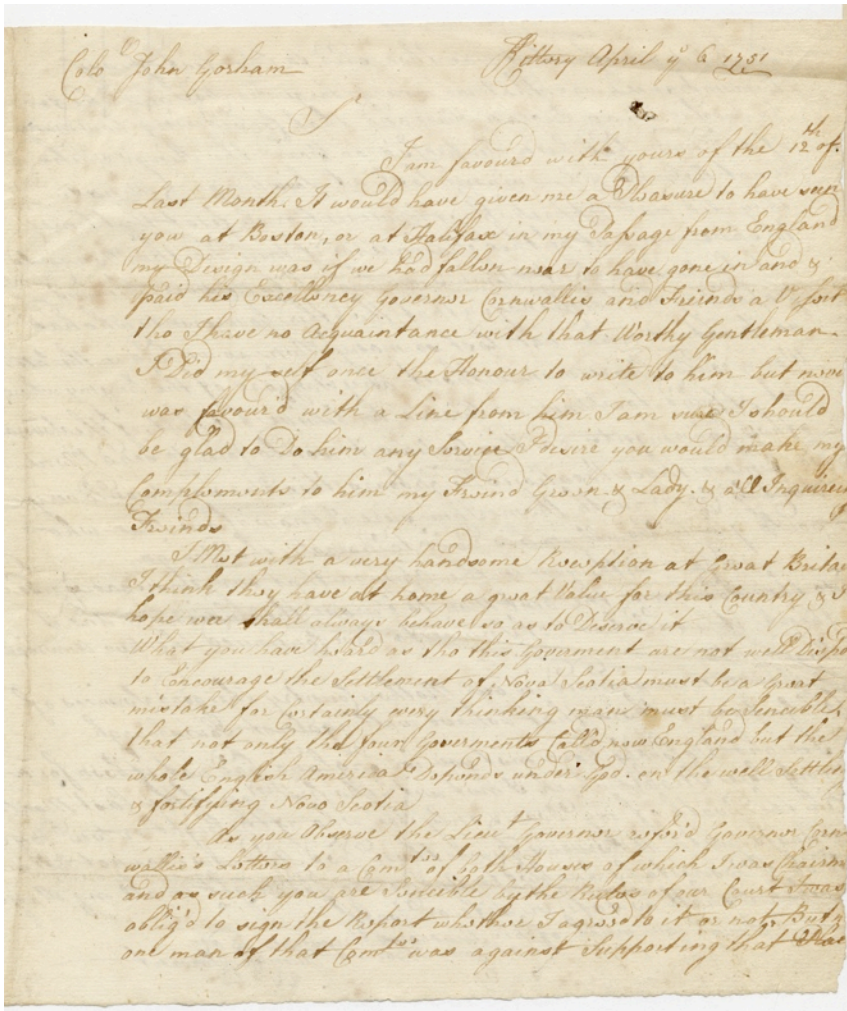 Colo John Gorham
Kittery April ye 6 1751
Sr
I am favourd with yours of the 12th of
Last Month. It would have given me a Pleasure to have seen
you at Boston, or at Halifax in my Passage from England
my Design was if we had fallen near to have gone in and &
paid his Excellency Governor Cornwallis and Friends a Vissit
tho I have no Acquaintance with that Worthy Gentleman.
I Did my self once the Honour to write to him but never
was favour'd with a Line from him I am sure I should
be glad to Do him any Service I desire you would make my
Complements to him my Freind Green & Lady. & all Inquireing
Freinds
I Met with a very handsome Reception at Great Britai
I think they have at home a great Value for this Country & I
hope wee shall always behave so as to Deserve it
What you have heard as tho this Goverment are not well Dispo
to Encourage the Settlement of Nova Scotia must be a Great
mistake for Certainly every thinking man must be Sencible
that not only the four Goverments Calld new England but the
whole English America Depends under God. on the well Settling
& fortifying Nova Scotia
As you Observe the Lieut Governor refer'd Governor Corn
wallis's Letters to a Comtee of both Houses of which I was Chairm
and as such you are Sencible by the Rules of our Court I was
oblig'd to sign the Report whether I agreed to it or not, But
one man of that Comtee was against Supporting that Plac